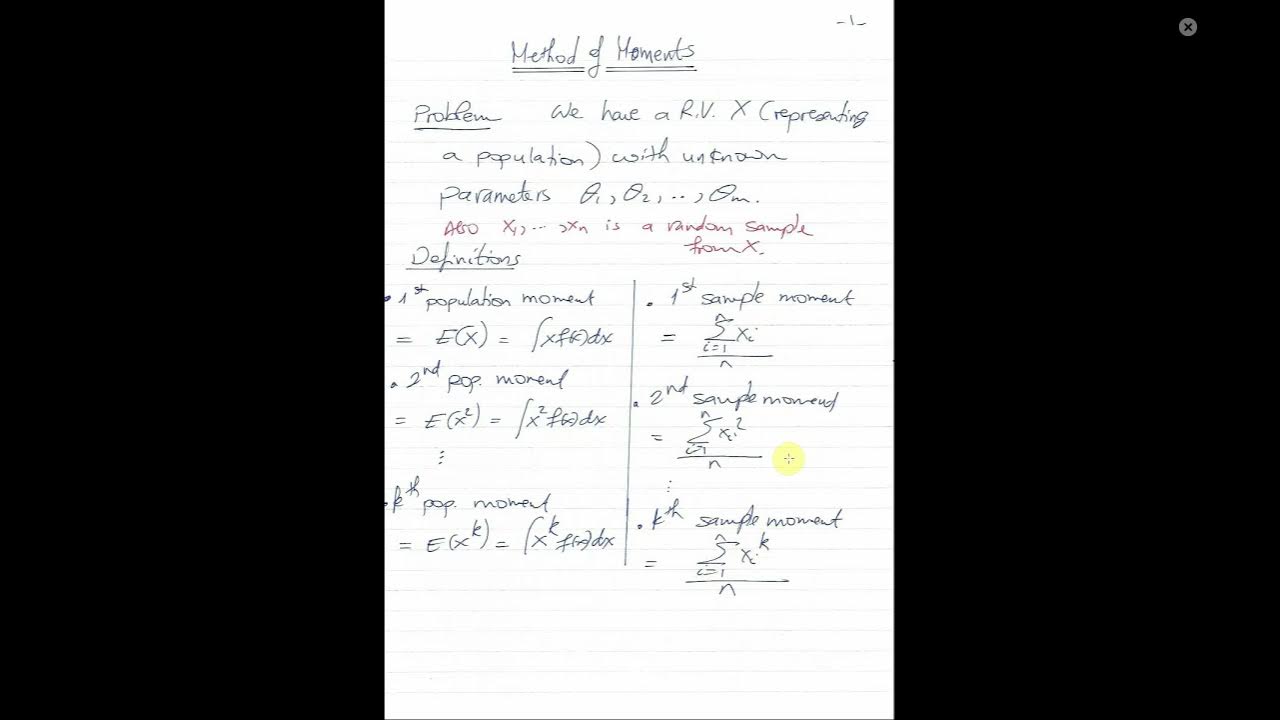 -1-
Method of Moments
Problem We have a R.V. X (representing
a population) with unknown
parameters θ₁, θ₂, .., θm.
Also x₁, ..., xn is a random sample
from X.
Definitions
• 1st population moment
= E(X) = ∫xf(x)dx
• 2nd pop. moment
= E(x²) = ∫x²f(x)dx
⋮
• kth pop. moment
= E(x^k) = ∫x^k f(x)dx
• 1st sample moment
= Σ_{i=1}^{n} xi
n
• 2nd sample moment
= Σ_{i=1}^{n} xi²
n
⋮
• kth sample moment
= Σ_{i=1}^{n} xi^k
n